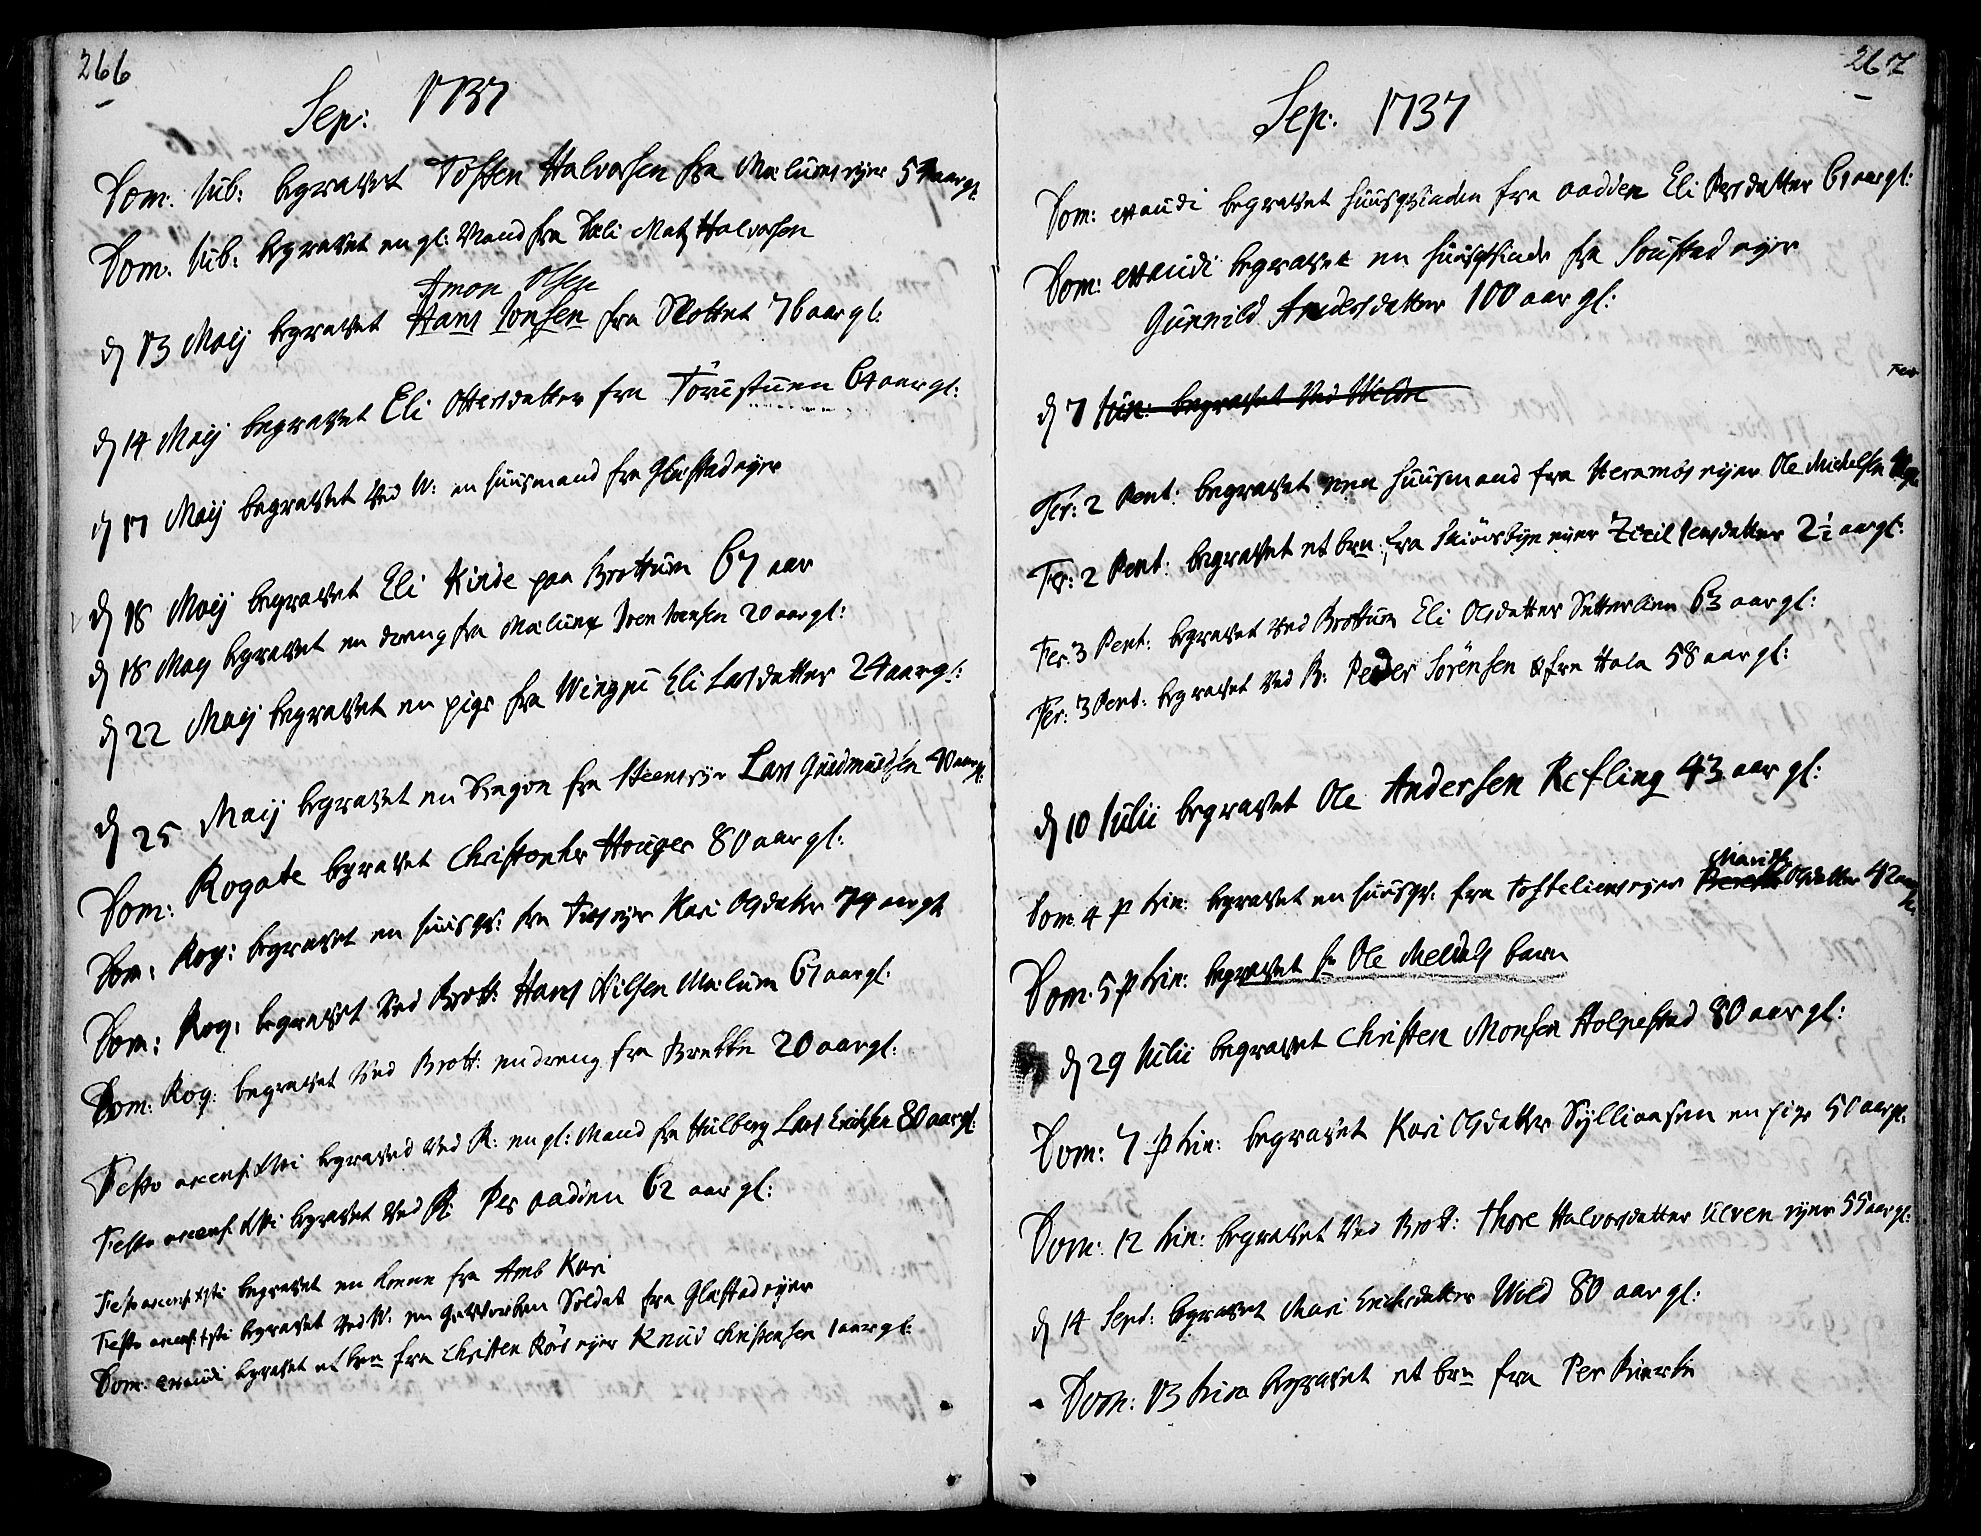 266
Sep: 1737
Dom: Jub: begravet Tosten Halvorsen fra Mælums eyer 59 aar gl:
Dom: Jub: begravet en gl: Mand fra Dæli Matz Halvorsen
Amon Olsen
d 13 Maij begravet Hans Jonsen fra Slottet 76 aar gl:
d 14 Maij begravet Eli Ottersdatter fra Torustuen 64 aar gl:
d 17 Maij begravet ved V: en huusmand fra Glæstad eyer
d 18 Maij begravet Eli Kinde paa Brottum 67 aar
d 18 Maij begravet en dreng fra Mælum Iven Ivensen 20 aar gl:
d 22 Maij begravet en pige fra Wingru Eli Larsdatter 24 aar gl:
d 25 Maij begravet en fra Steens eyer Lars Gudmundsen 40 aar gl:
Dom: Rogate begravet Christopher Houger 80 aar gl:
Dom: Rog: begravet en huusqv: fra eyer Kari Olsdatter 74 aar gl:
Dom: Rog: begravet ved Brott: Hans Nilsen Mælum 61 aar gl:
Dom: Rog: begravet ved Brott: en dreng fra Brekke 20 aar gl:
Festo ascens: Xsti begraved ved R: en gl: Mand fra Hulberg Lars Erichsen 80 aar gl:
Festo ascens: Xsti begravet ved R: Per aadden 62 aar gl:
Festo ascens: Xsti begravet en kone fra Amb Kari
Festo ascens: Xsti begravet ved V: en Geworben Soldat fra Glæstad eyer
Dom: exaudi begravet et brn fra Christen Røis eyer Knud Christensen 1 aar gl:
267
Sep: 1737
Dom: exaudi begravet huusqvinden fra aadden Eli Persdatter 61 aar gl:
Dom: exaudi begravet en huusqvinde fra Soustad eyer
Gunnild Andersdatter 100 aar gl:
d 7 Jun: begravet ved
Fer: 2 Pent: begravet een huusmand fra Heramos eyer Ole Michelsen
Fer: 2 Pent: begravet et brn fra eyer Zizil Jensdatter 2½ aar gl:
Fer: 3 Pent: begravet ved Brottum Eli Olsdatter Setterlien 63 aar gl:
Fer: 3 Pent: begravet ved B: Peder Sørensen fra Hola 58 aar gl:
d 10 Julii begravet Ole Andersen Refling 43 aar gl:
Marith
Dom 4 p trin: begravet en huusqv: fra Tostelien eyer Olsdatter 42 aar gl:
Dom: 5 p trin: begravet Ole Meldals barn
d 29 Julii begravet Christen Monsen Holpestad 80 aar gl:
Dom: 7 p trin: begravet Kari Olsdatter Sylliaasen en pige 50 aar gl:
Dom: 12 trin: begravet ved Brott: Thore Halvorsdatter Ulven eyer 55 aar gl:
d 14 Sept: begravet Mari Erichsdatter Wold 80 aar gl:
Dom: 13 trin begravet et brn fra Per Kierke